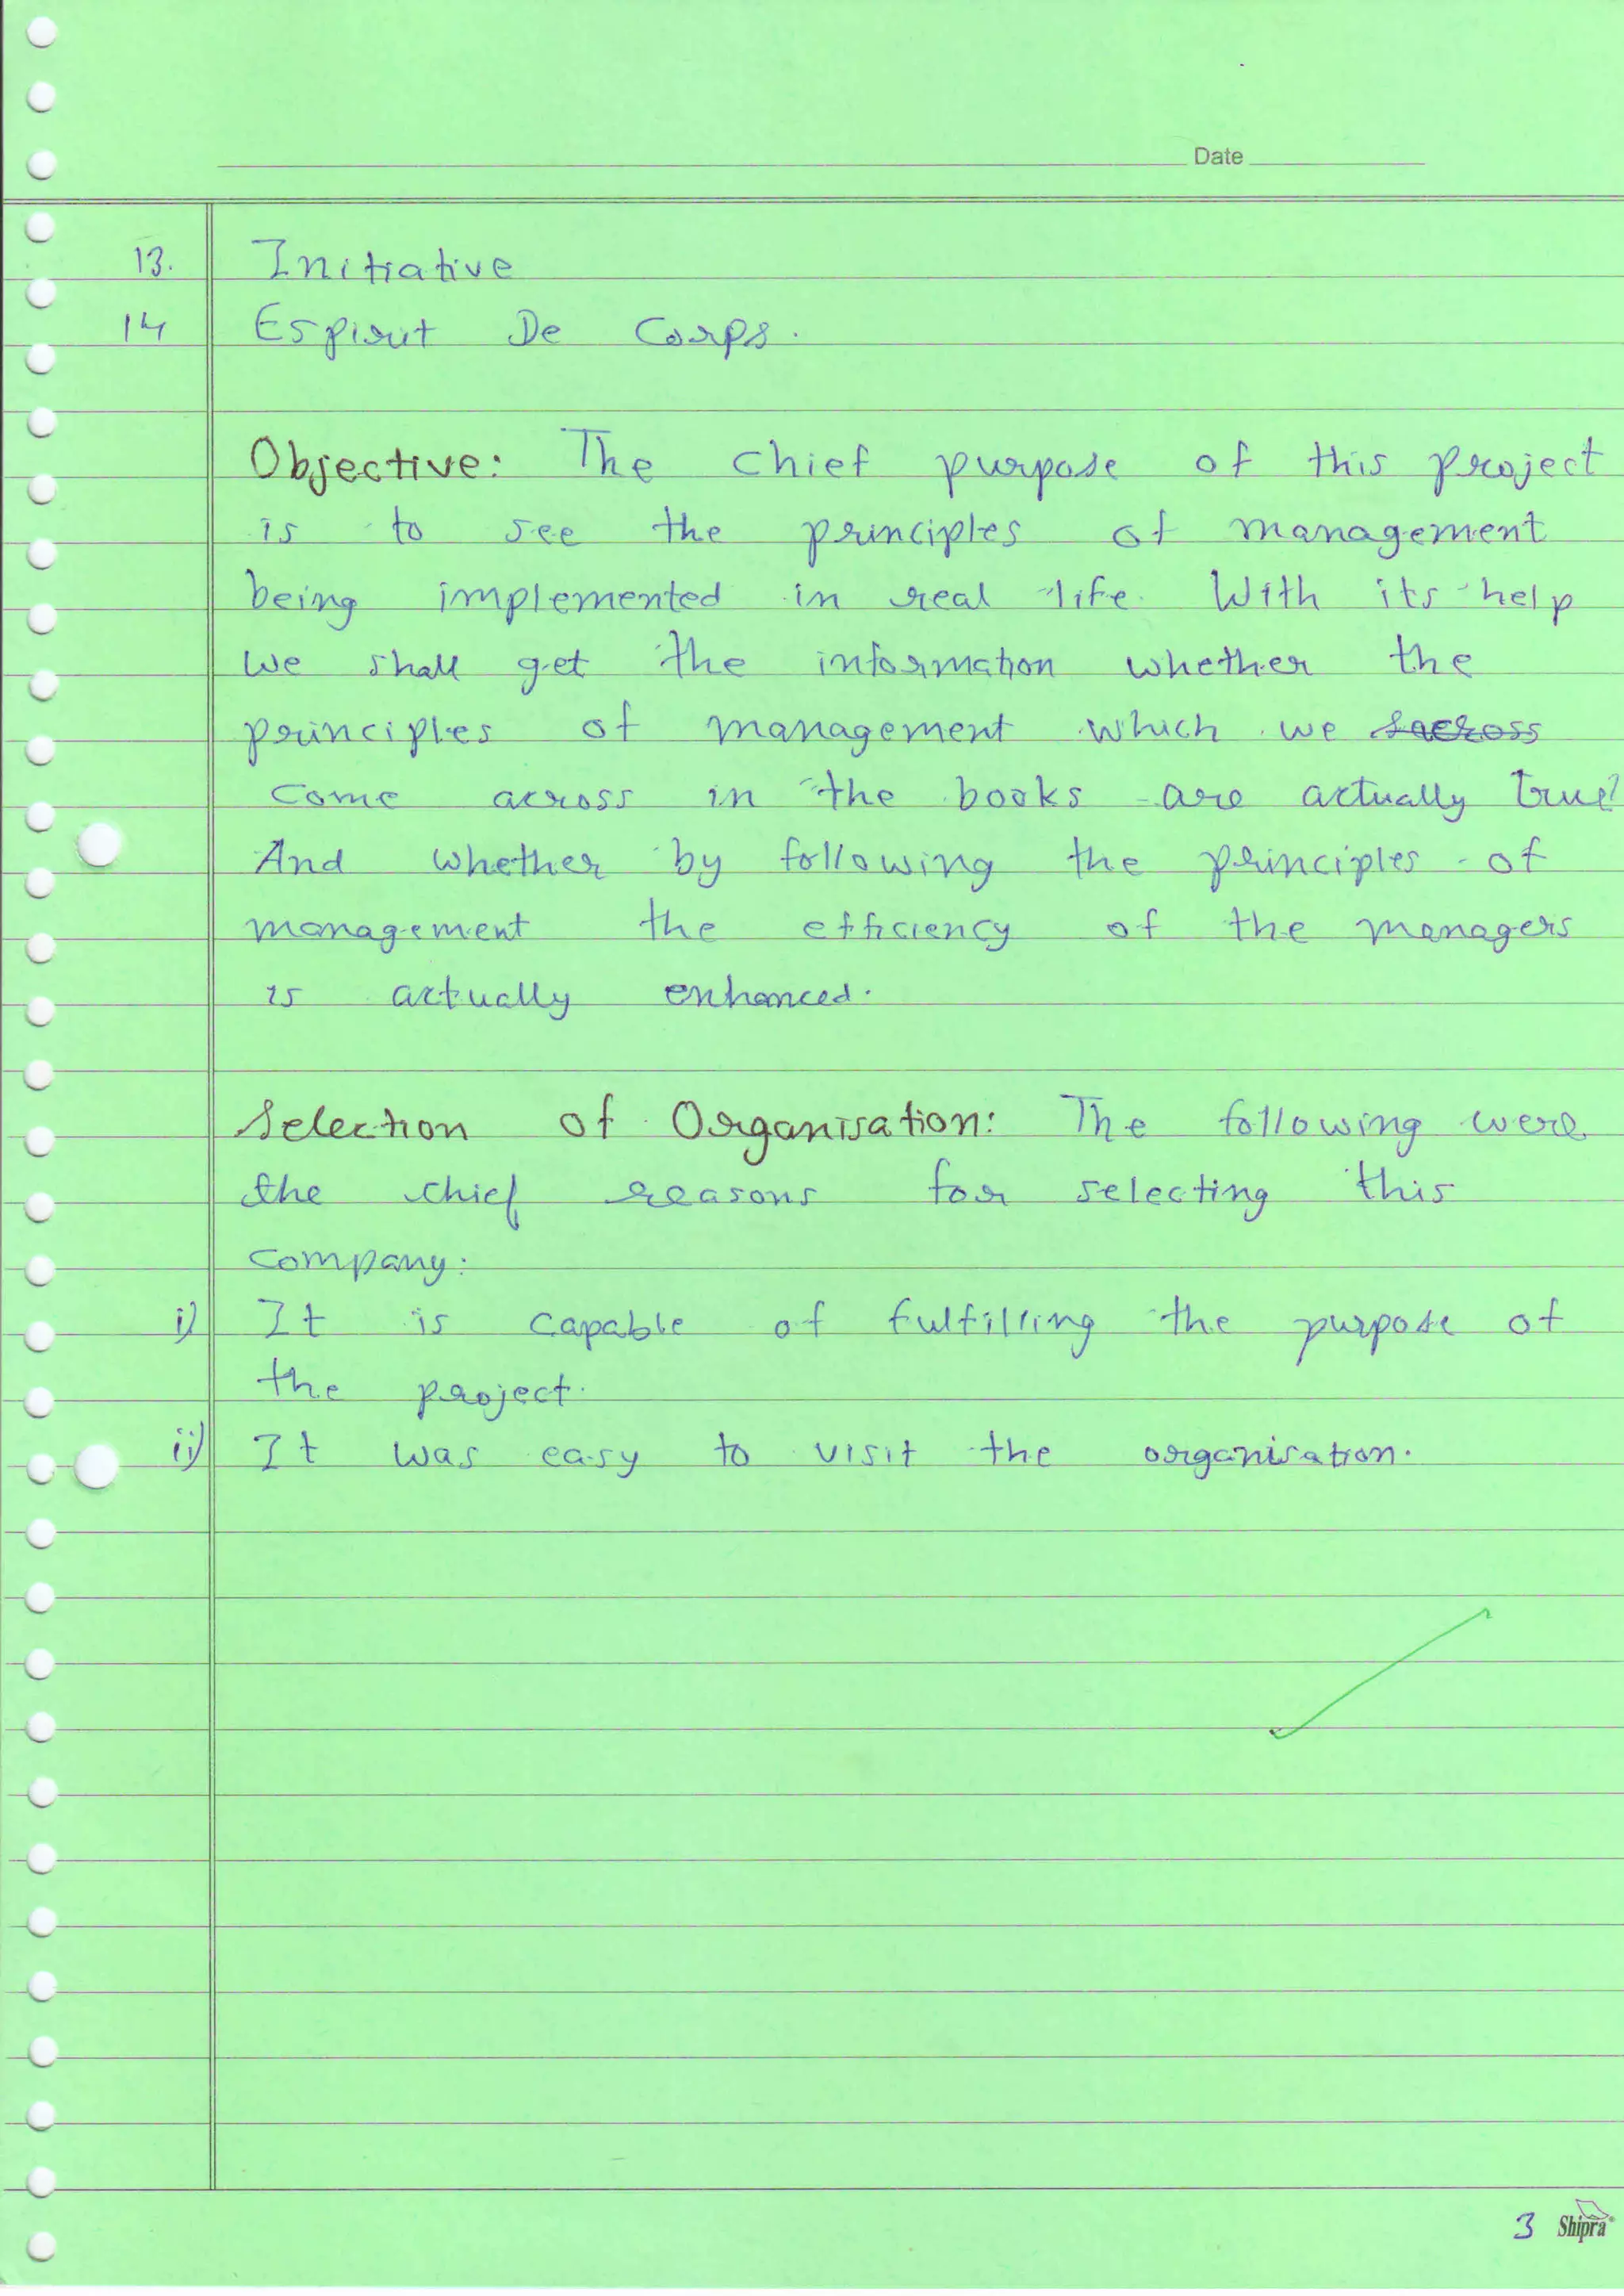 Date
13. Initiative
14 Espirit De Corps.
Objective: The chief purpose of this project
is to see the principles of management
being implemented in real life. With its help
we shall get the information whether the
principles of management which we
come across in the books are actually true?
And whether by following the principles of
management the efficiency of the managers
is actually enhanced.
Selection of Organisation: The following were
the chief reasons for selecting this
company:
i) It is capable of fulfilling the purpose of
the project.
ii) It was easy to visit the organisation.
3 Shipra